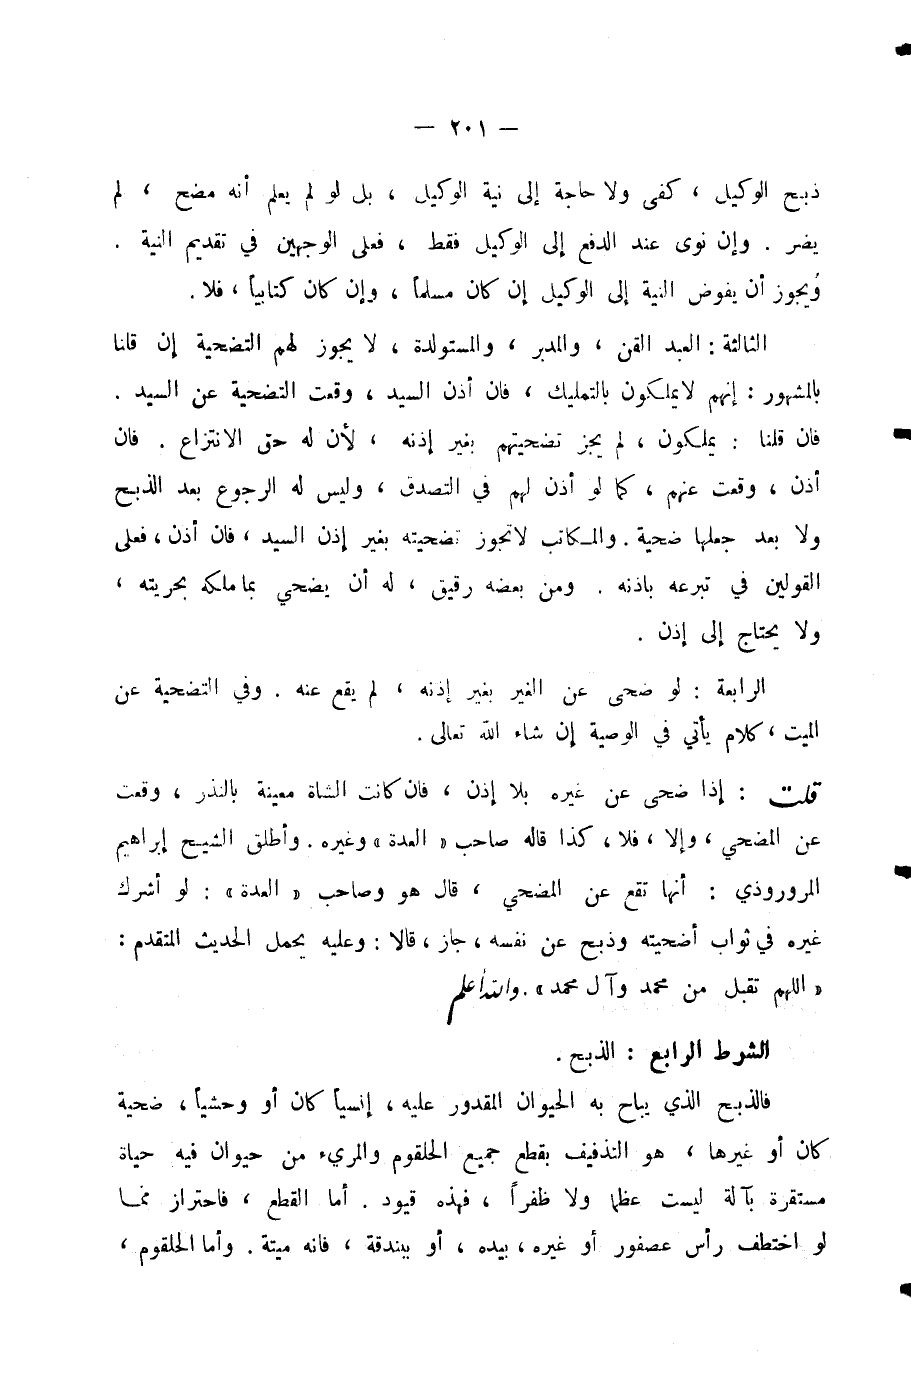 — ٢٠١ —
ذبح الوكيل ، كفى ولا حاجة إلى نية الوكيل ، بل لو لم يعلم أنه مضح ، لم
يضر . وإن نوى عند الدفع إلى الوكيل فقط ، فعلى الوجهين في تقديم النية .
ويجوز أن يفوض النية إلى الوكيل إن كان مسلماً ، وإن كان كتابياً ، فلا .
الثالثة : العبد القن ، والمدبر ، والمستولدة ، لا يجوز لهم التضحية إن قلنا
بالمشهور : إنهم لا يملكون بالتمليك ، فان أذن السيد ، وقعت التضحية عن السيد .
فان قلنا : يملكون ، لم يجز تضحيتهم بغير إذنه ، لأن له حق الانتزاع . فان
أذن ، وقعت عنهم ، كما لو أذن لهم في التصدق ، وليس له الرجوع بعد الذبح
ولا بعد جعلها ضحية . والمكاتب لا تجوز تضحيته بغير إذن السيد ، فان أذن ، فعلى
القولين في تبرعه باذنه . ومن بعضه رقيق ، له أن يضحي بما ملكه بحريته ،
ولا يحتاج إلى إذن .
الرابعة : لو ضحى عن الغير بغير إذنه ، لم يقع عنه . وفي التضحية عن
الميت ، كلام يأتي في الوصية إن شاء الله تعالى .
قلت : إذا ضحى عن غيره بلا إذن ، فان كانت الشاة معينة بالنذر ، وقعت
عن المضحي ، وإلا ، فلا ، كذا قاله صاحب « العدة » وغيره . وأطلق الشيخ إبراهيم
المروروذي : أنها تقع عن المضحي ، قال هو وصاحب « العدة » : لو أشرك
غيره في ثواب أضحيته وذبح عن نفسه ، جاز ، قالا : وعليه يحمل الحديث المتقدم :
« اللهم تقبل من محمد وآل محمد » . والله أعلم
الشرط الرابع : الذبح .
فالذبح الذي يباح به الحيوان المقدور عليه ، إنسياً كان أو وحشياً ، ضحية
كان أو غيرها ، هو التذفيف بقطع جميع الحلقوم والمريء من حيوان فيه حياة
مستقرة بآلة ليست عظما ولا ظفراً ، فهذه قيود . أما القطع ، فاحتراز مما
لو اختطف رأس عصفور أو غيره ، بيده ، أو ببندقة ، فانه ميتة . وأما الحلقوم ،